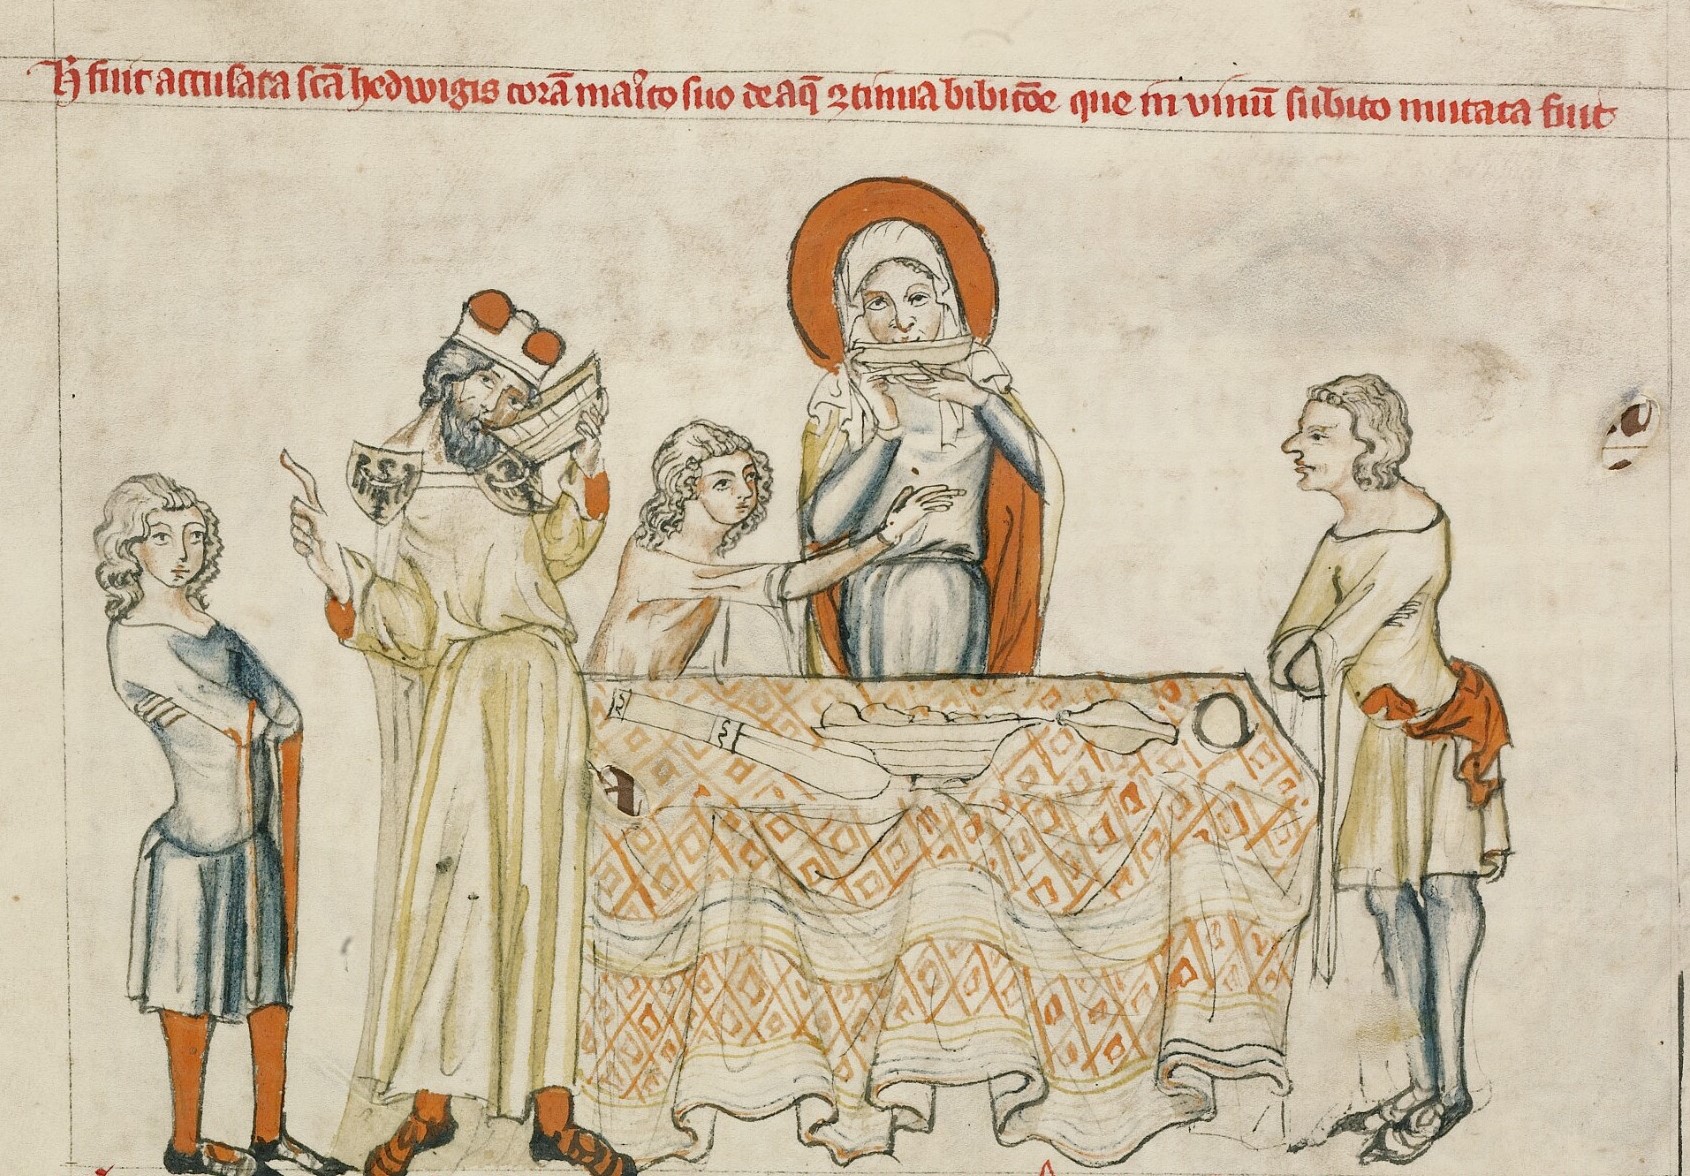 H̄ fuit accusata scā hedwigis corā mar̾to suo de aq̄ ꝯtinua bibicōe que in vinū subito mutata fuit